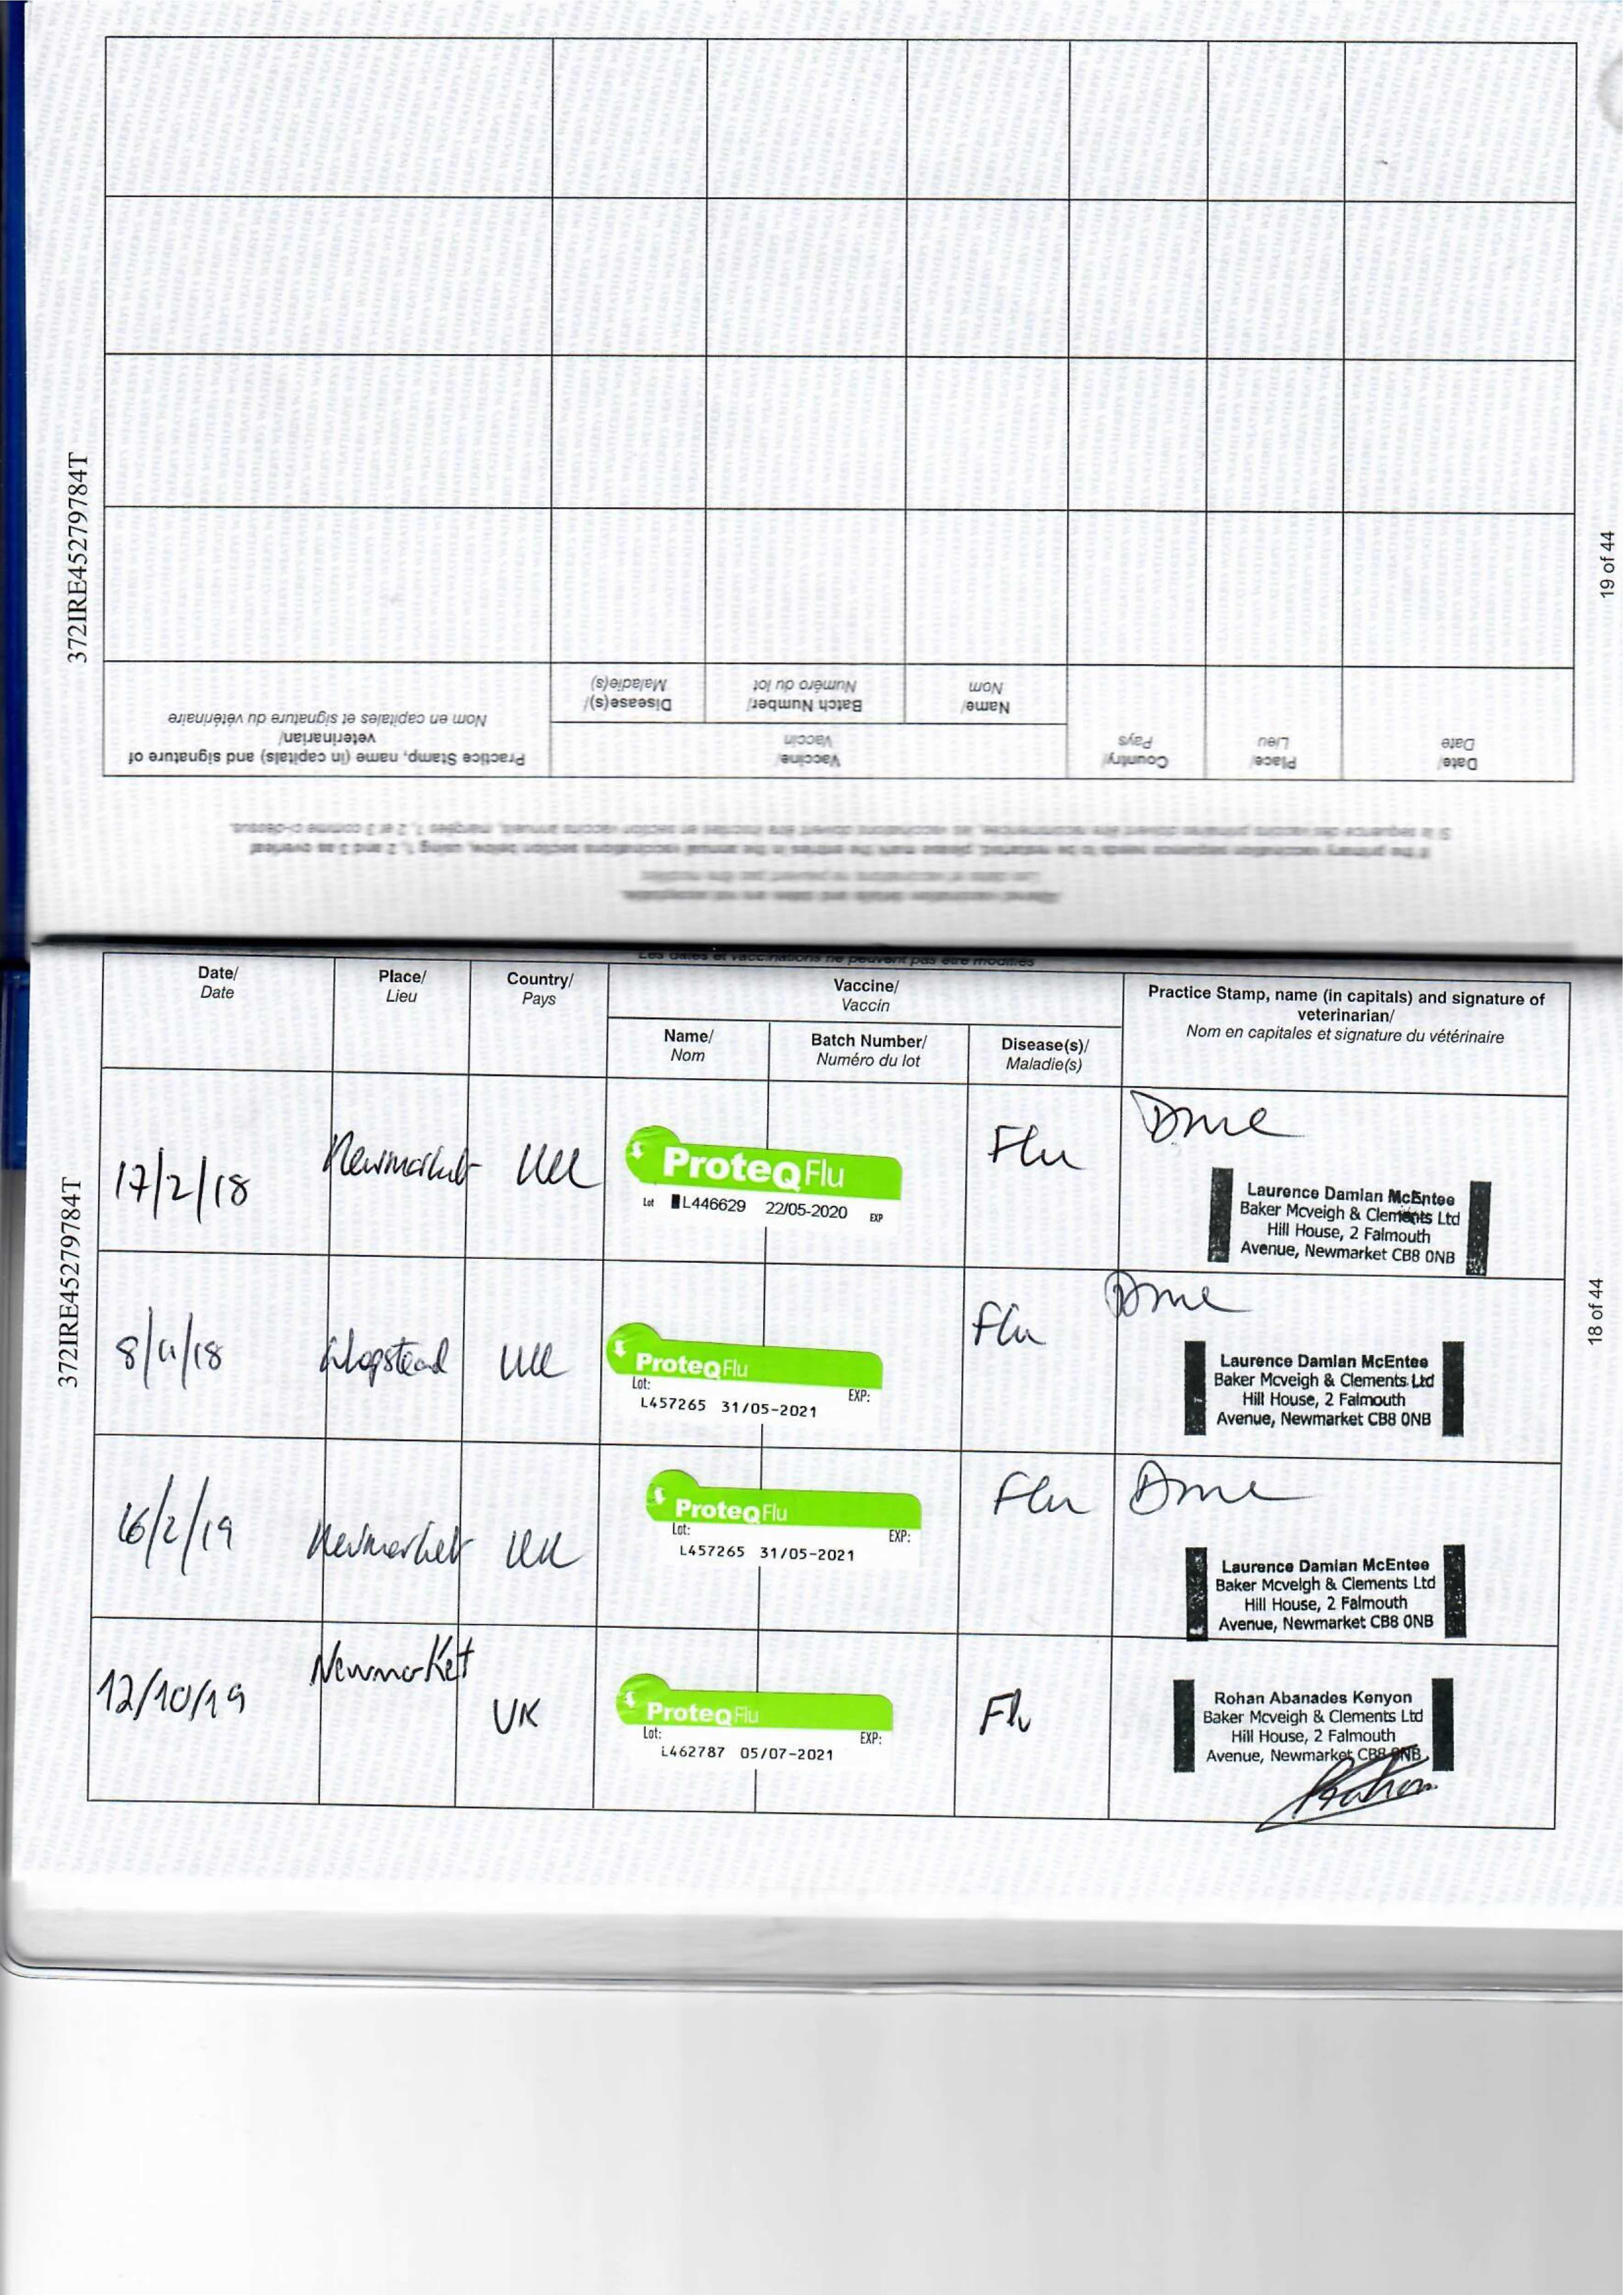 372IRE45279784T
19 of 44
Altered vaccination details and dates are not acceptable.
Les dates et vaccinations ne peuvent pas être modifiés
If the primary vaccination sequence needs to be restarted, please mark the entries in the annual vaccinations section below, using 1, 2 and 3 as overleaf
Si la séquence des vaccins primaires doivent être recommencés, les vaccinations doivent être inscrites en section vaccins annuels, margées 1, 2 et 3 comme ci-dessus.
Date/
Date
Place/
Lieu
Country/
Pays
Vaccine/
Vaccin
Name/
Nom
Batch Number/
Numéro du lot
Disease(s)/
Maladie(s)
Practice Stamp, name (in capitals) and signature of
veterinarian/
Nom en capitales et signature du vétérinaire
Les dates et vaccinations ne peuvent pas être modifiés
372IRE45279784T
18 of 44
Date/
Date
Place/
Lieu
Country/
Pays
Vaccine/
Vaccin
Name/
Nom
Batch Number/
Numéro du lot
Disease(s)/
Maladie(s)
Practice Stamp, name (in capitals) and signature of
veterinarian/
Nom en capitales et signature du vétérinaire
17/2/18
Newmarket
UK
ProteqFlu
Lot L446629 22/05-2020 EXP
Flu
Laurence Damian McEntee
Baker Mcveigh & Clements Ltd
Hill House, 2 Falmouth
Avenue, Newmarket CB8 0NB
UK
ProteqFlu
Lot: EXP:
L457265 31/05-2021
Flu
Laurence Damian McEntee
Baker Mcveigh & Clements Ltd
Hill House, 2 Falmouth
Avenue, Newmarket CB8 0NB
16/2/19
Newmarket
UK
ProteqFlu
Lot: EXP:
L457265 31/05-2021
Flu
Laurence Damian McEntee
Baker Mcveigh & Clements Ltd
Hill House, 2 Falmouth
Avenue, Newmarket CB8 0NB
12/10/19
Newmarket
UK
ProteqFlu
Lot: EXP:
L462787 05/07-2021
Flu
Rohan Abanades Kenyon
Baker Mcveigh & Clements Ltd
Hill House, 2 Falmouth
Avenue, Newmarket CB8 0NB